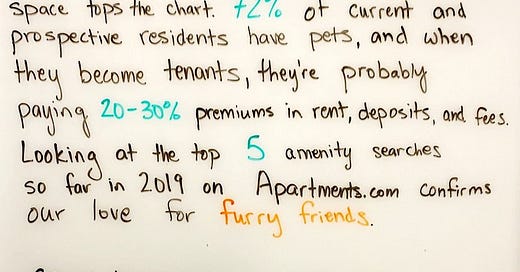 space tops the chart. 72% of current and
prospective residents have pets, and when
they become tenants, they're probably
paying 20-30% premiums in rent, deposits, and fees.
Looking at the top 5 amenity searches
so far in 2019 on Apartments.com confirms
our love for furry friends.